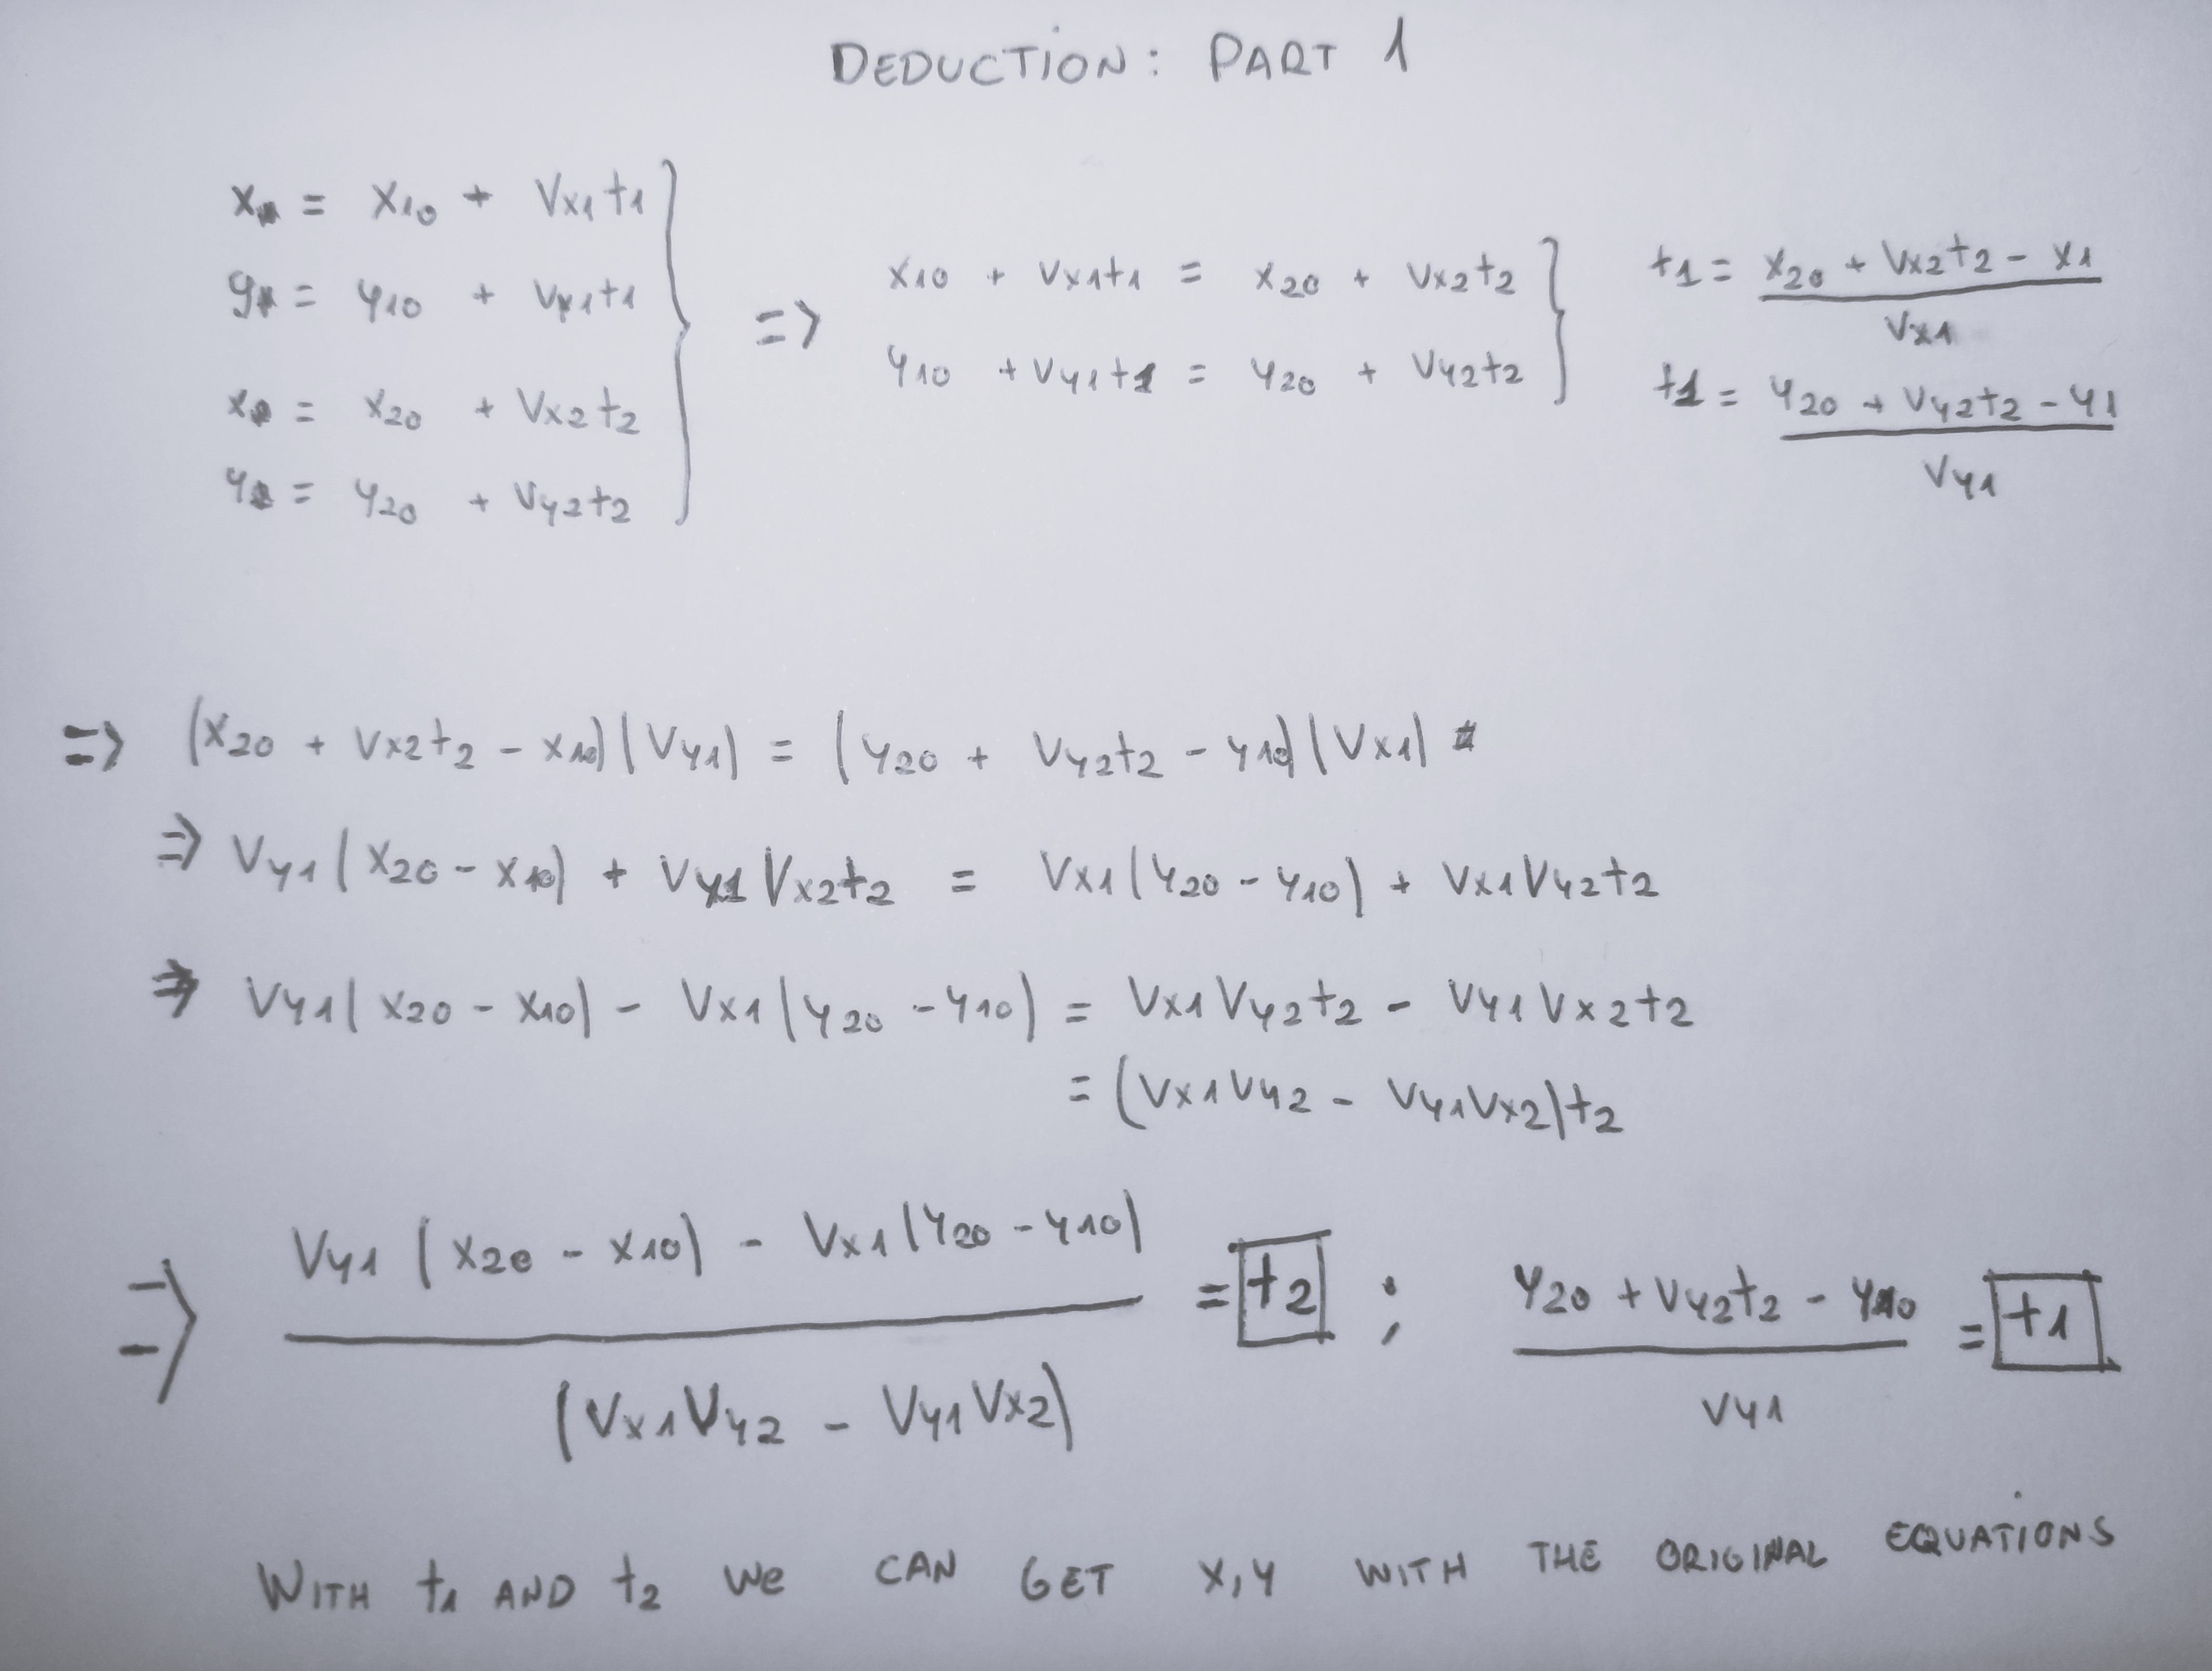 DEDUCTION: PART 1
x = x10 + Vx1t1
y = y10 + Vy1t1
x = x20 + Vx2t2
y = y20 + Vy2t2
=>
x10 + Vx1t1 = x20 + Vx2t2
y10 + Vy1t1 = y20 + Vy2t2
t1 = x20 + Vx2t2 - x1
Vx1
t1 = y20 + Vy2t2 - y1
Vy1
=> (x20 + Vx2t2 - x10)(Vy1) = (y20 + Vy2t2 - y10)(Vx1)
=> Vy1(x20 - x10) + Vy1Vx2t2 = Vx1(y20 - y10) + Vx1Vy2t2
=> Vy1(x20 - x10) - Vx1(y20 - y10) = Vx1Vy2t2 - Vy1Vx2t2
= (Vx1Vy2 - Vy1Vx2)t2
=> Vy1(x20 - x10) - Vx1(y20 - y10)
(Vx1Vy2 - Vy1Vx2)
= t2 ;
y20 + Vy2t2 - y10
Vy1
= t1
WITH t1 AND t2 WE CAN GET X,Y WITH THE ORIGINAL EQUATIONS